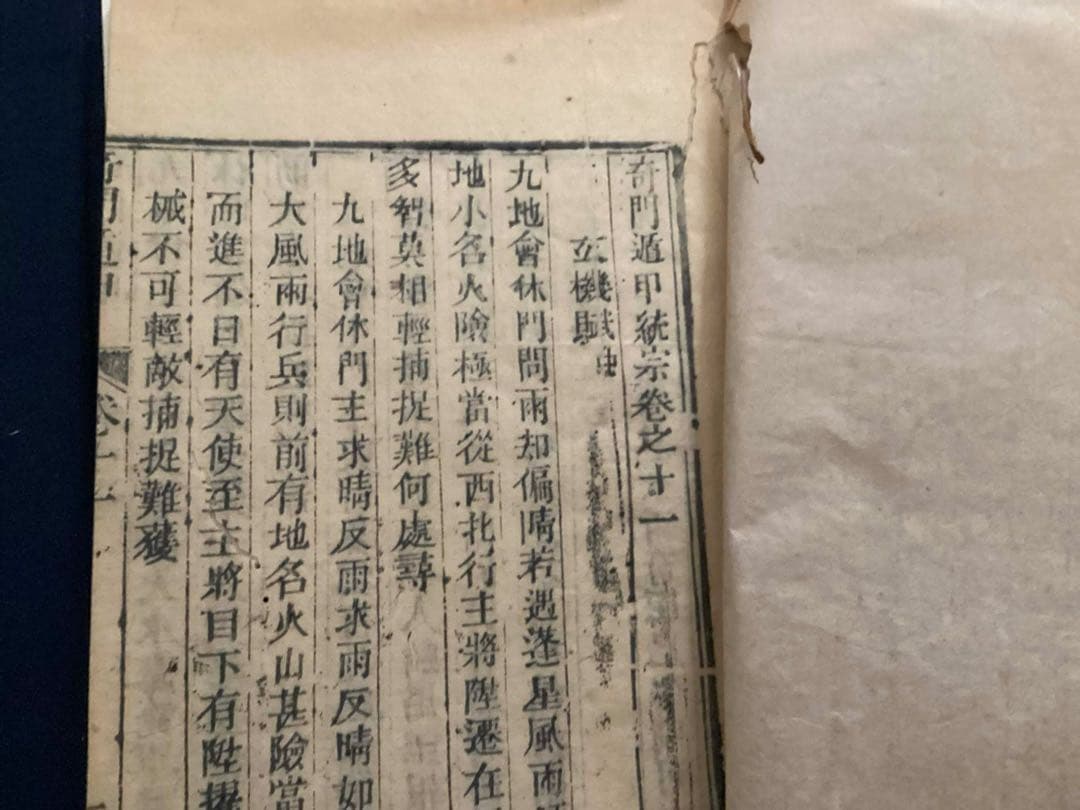 奇門遁甲統宗卷之十一
玄機賦
九地會休門問雨却偏晴若遇蓬星風雨
地小名火險極當從西北行主將陞遷在
多智莫相輕捕捉難何處尋
九地會休門主求晴反雨求雨反晴如
大風雨行兵則前有地名火山甚險當
而進不日有天使至主將目下有陞擢
械不可輕敵捕捉難獲
奇門遁甲 卷十一